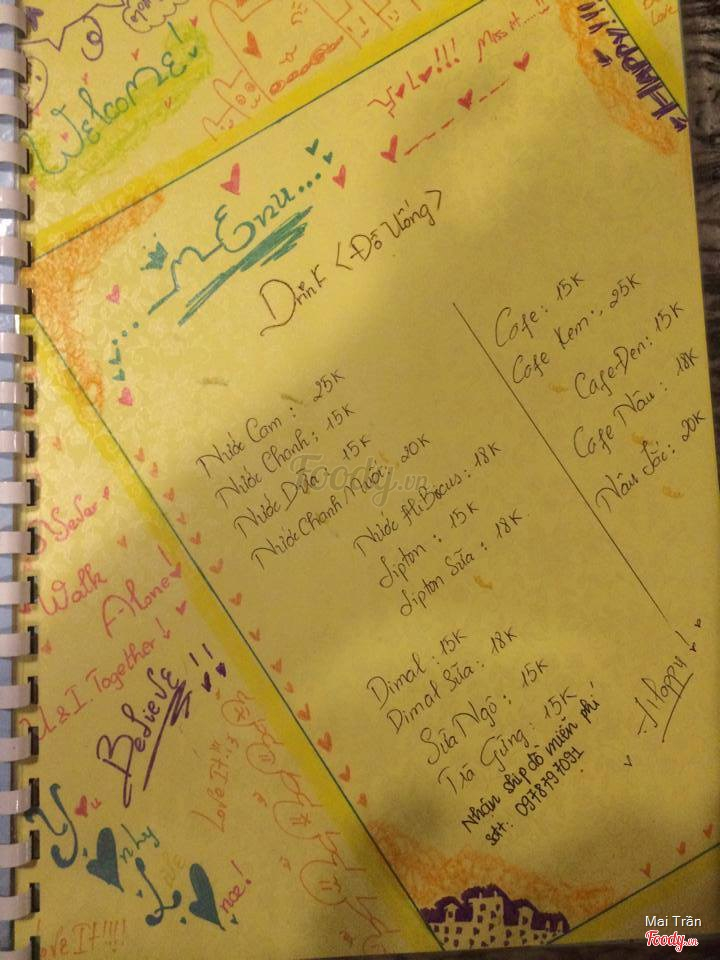 Welcome!
Happy!!!
Love
Miss it....!!
MEnu...
Drink <Đồ Uống>
Nước Cam : 25K
Nước Chanh : 15K
Nước Dừa : 15K
Nước Chanh Muối : 20K
Nước HiBiscus : 18K
Lipton : 15K
Lipton Sữa : 18K
Dimal : 15K
Dimal Sữa : 18K
Sữa Ngô : 15K
Trà Gừng : 15K
Nhận ship đồ miễn phí
sđt: 0978797091
Cafe : 15K
Cafe Kem : 25K
Cafe Đen : 15K
Cafe Nâu : 18K
Nâu Lắc : 20K
Happy!
Never
Walk
Alone!
U & I. Together!
BeLieVE !!
Love It!!!
Foody.vn
Mai Trần
Foody.vn